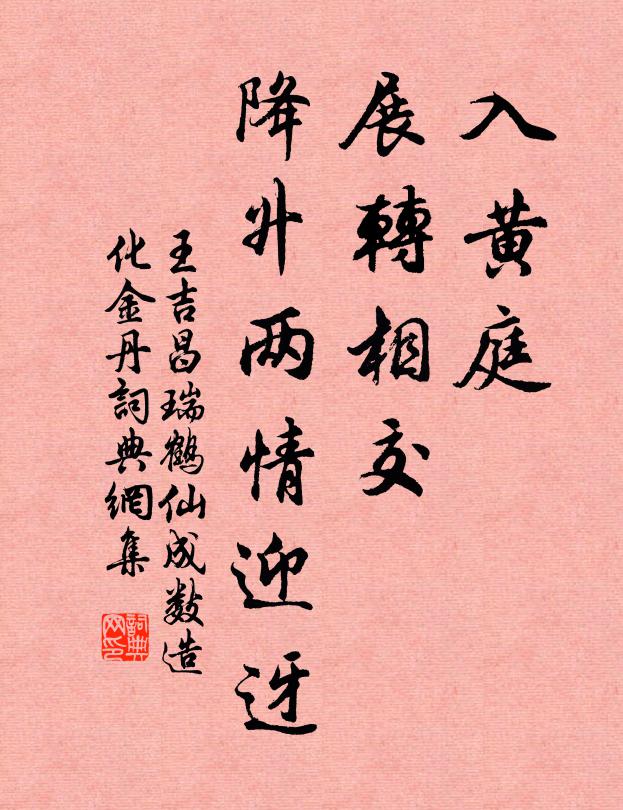 入黄庭
展轉相交
降升两情迎迓
王吉昌瑞鶴仙成數造
化金丹詞典網集
詞典
网印